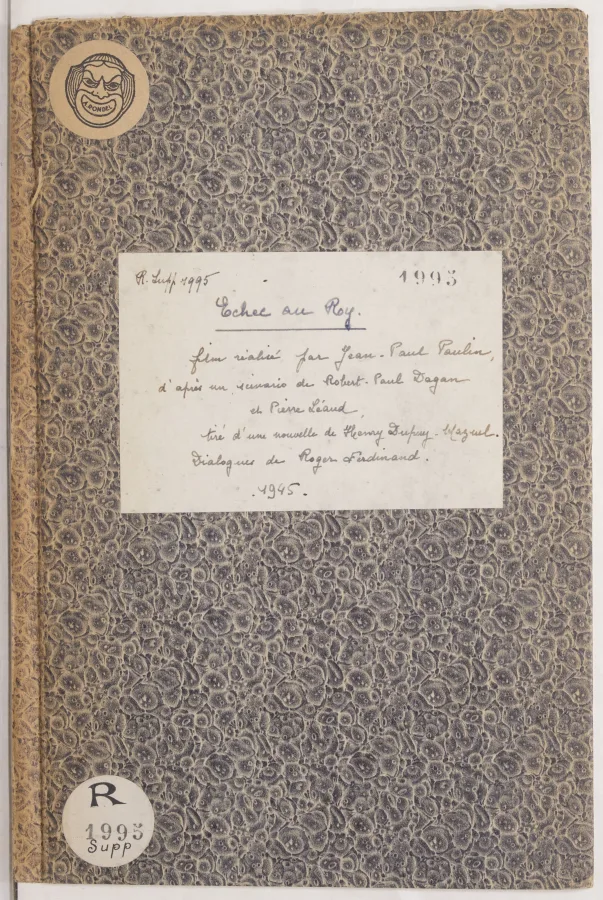 A. RONDEL
R. Supp 1995
1995
Echec au Roy.
film réalisé par Jean-Paul Paulin,
d'après un scénario de Robert-Paul Dagan
et Pierre Léaud,
tiré d'une nouvelle de Henry Dupuy-Mazuel.
Dialogues de Roger Ferdinand.
. 1945 .
R
1995
Supp